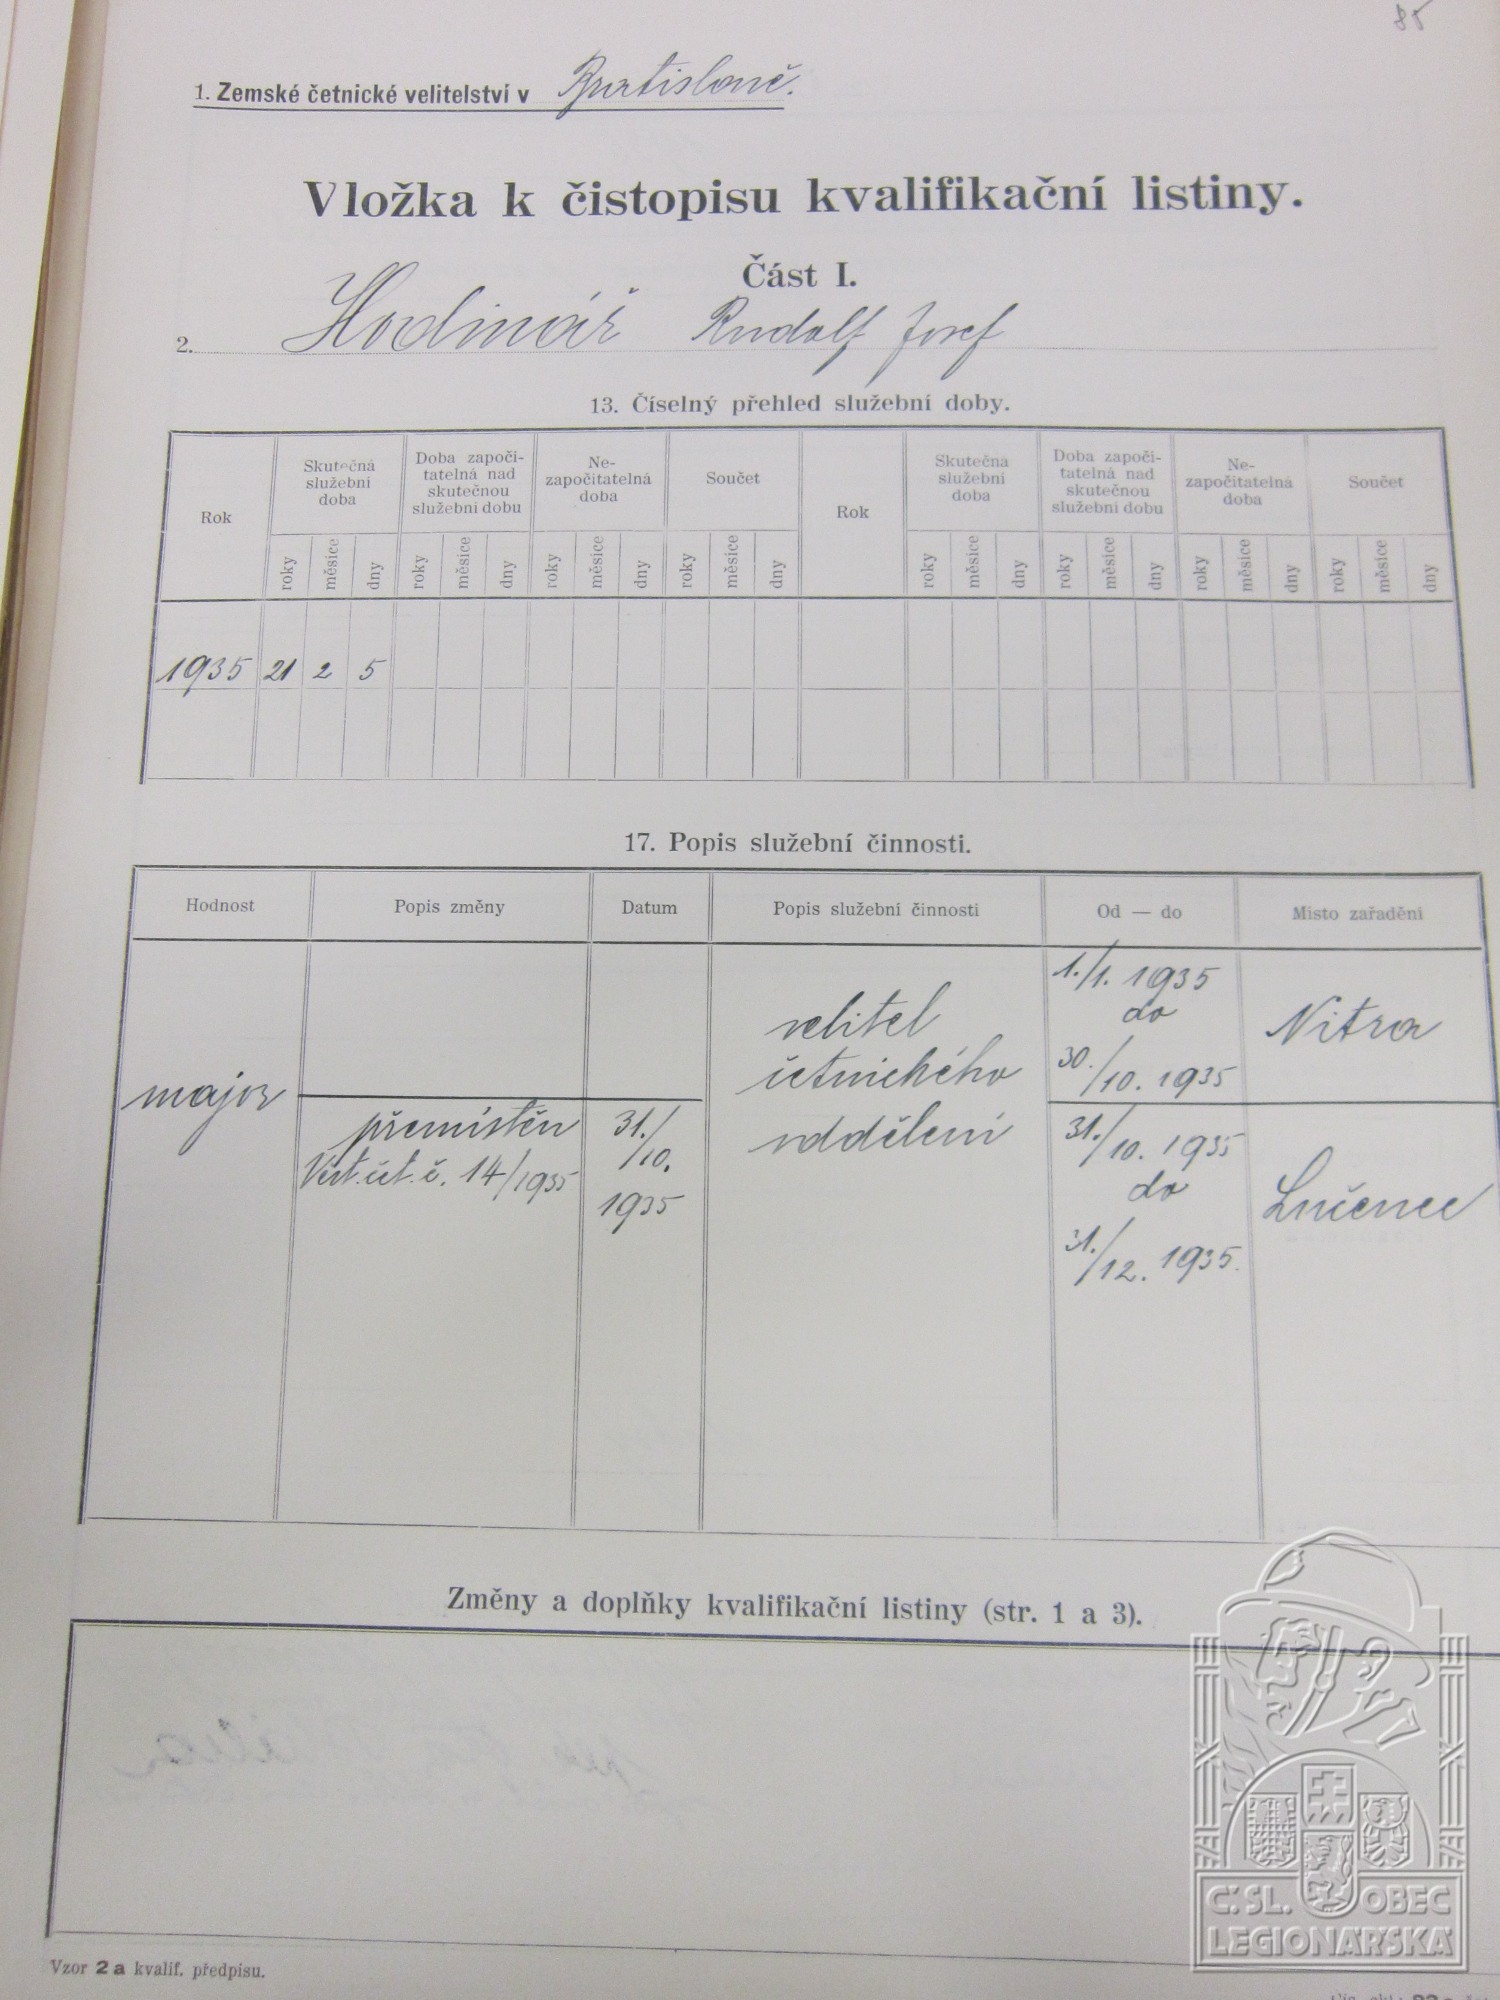 85
1. Zemské četnické velitelství v Bratislavě.
Vložka k čistopisu kvalifikační listiny.
Část I.
2. Hodinář Rudolf Josef
13. Číselný přehled služební doby.
Rok
Skutečná služební doba
Doba započi-
tatelná nad
skutečnou
služební dobu
Ne-
započitatelná
doba
Součet
Rok
Skutečná služební doba
Doba započi-
tatelná nad
skutečnou
služební dobu
Ne-
započitatelná
doba
Součet
roky měsíce dny roky měsíce dny roky měsíce dny roky měsíce dny roky měsíce dny roky měsíce dny roky měsíce dny roky měsíce dny
1935 21 2 5
17. Popis služební činnosti.
Hodnost Popis změny Datum Popis služební činnosti Od — do Místo zařadění
major
přemístěn
Věst. čet. č. 14/1935
31./10.
1935
velitel
četnického
oddělení
1./1. 1935
do
30./10. 1935
Nitra
31./10. 1935
do
31./12. 1935.
Lučenec
Změny a doplňky kvalifikační listiny (str. 1 a 3).
Vzor 2a kvalif. předpisu.
Č.SL. OBEC
LEGIONÁŘSKÁ